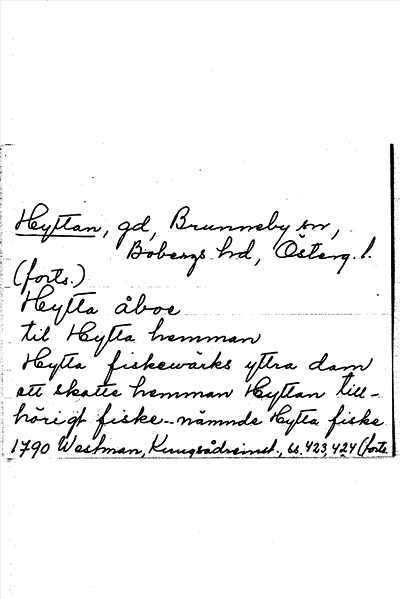 Hyttan, gd, Brunneby sn,
Bobergs hd, Österg. l.
(forts.)
Hytta åboe
til Hytta hemman
Hytta fiskewärks yttra dam
ett skatte hemman Hyttan till-
hörigt fiske - nämnde Hytta fiske
1790 Westman, Kungsådreinst., ss. 423, 424 (forts.